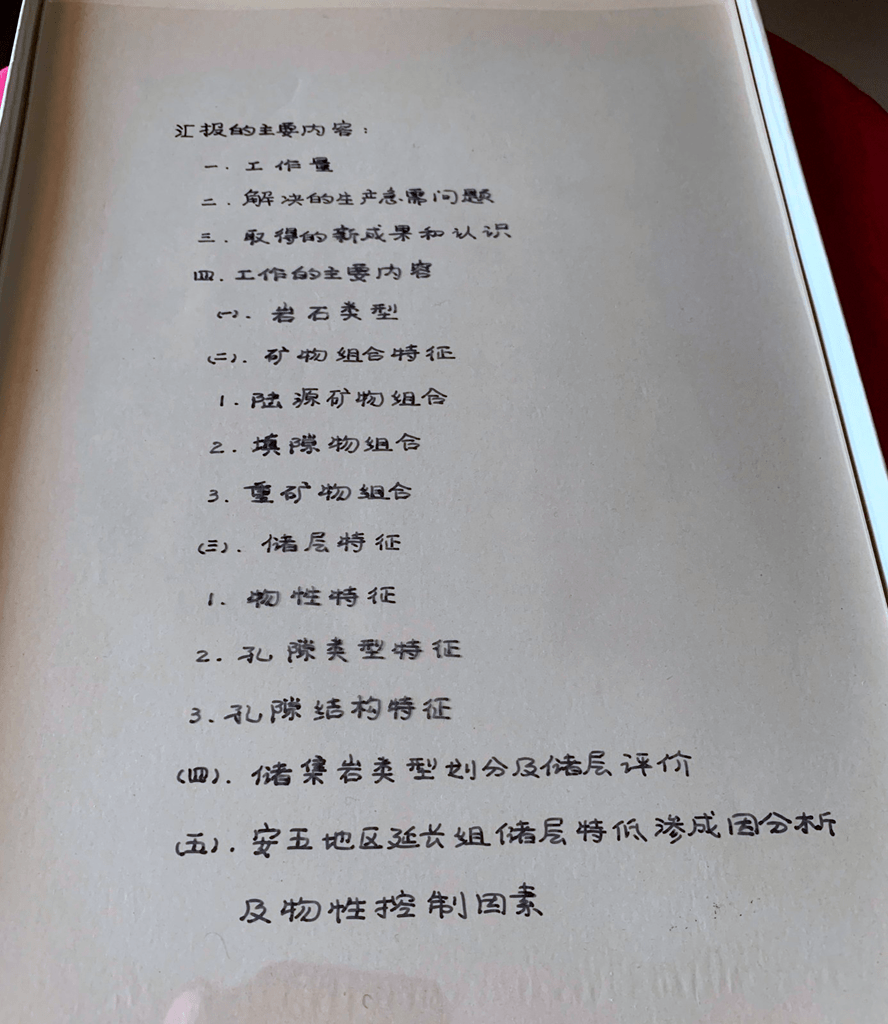 汇报的主要内容：
一．工作量
二．解决的生产急需问题
三．取得的新成果和认识
四．工作的主要内容
(一)．岩石类型
(二)．矿物组合特征
1．陆源矿物组合
2．填隙物组合
3．重矿物组合
(三)．储层特征
1．物性特征
2．孔隙类型特征
3．孔隙结构特征
(四)．储集岩类型划分及储层评价
(五)．安五地区延长组储层特低渗成因分析
及物性控制因素